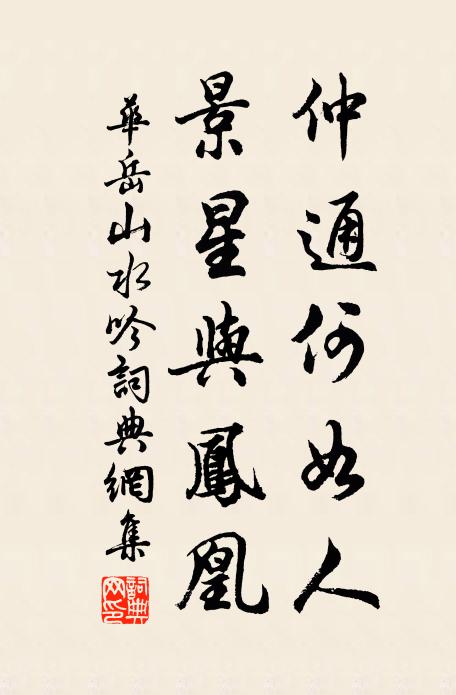 仲通何如人
景星與鳳凰
華岳山水吟詞典網集
詞典
网印